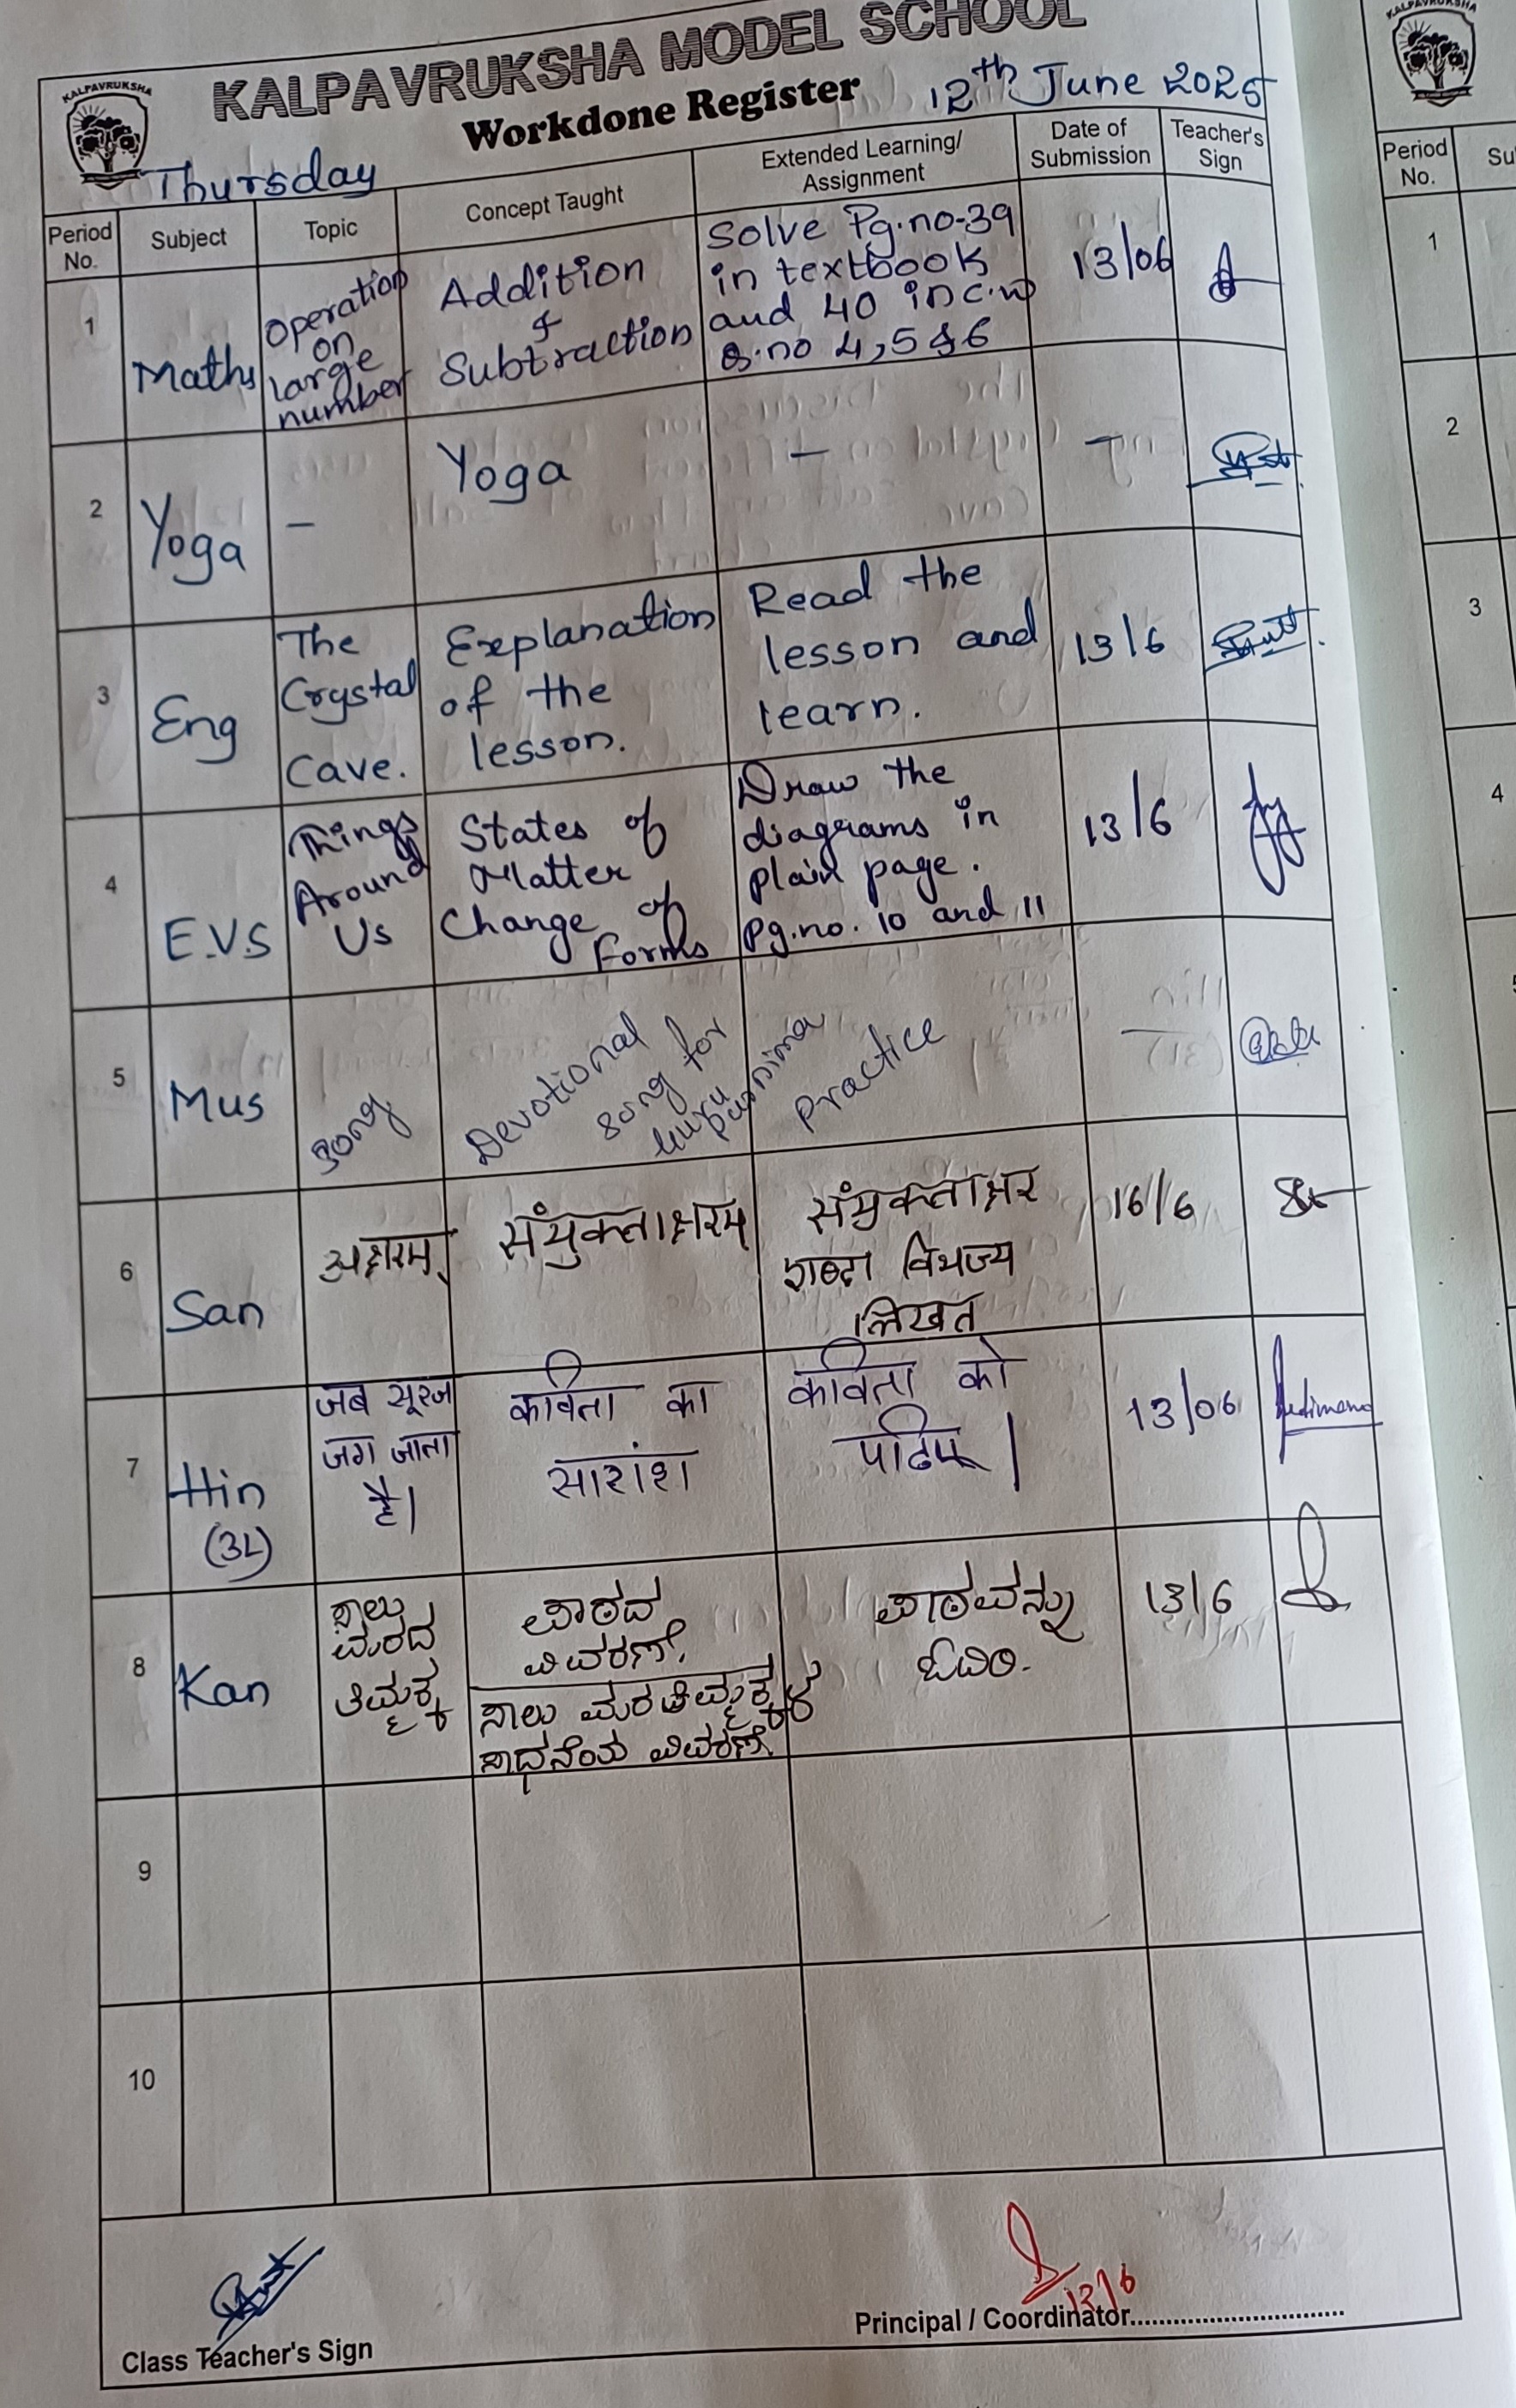 KALPAVRUKSHA
KALPAVRUKSHA MODEL SCHOOL
Workdone Register
12th June 2025
Thursday
Period No.
Subject
Topic
Concept Taught
Extended Learning/
Assignment
Date of
Submission
Teacher's
Sign
1
Maths
Operation
on
large
number
Addition
&
Subtraction
Solve Pg.no-39
in textbook
and 40 in c.w
Q.no 4,5 & 6
13/06
2
Yoga
–
Yoga
–
–
3
Eng
The
Crystal
Cave.
Explanation
of the
lesson.
Read the
lesson and
learn.
13/6
4
E.V.S
Things
Around
Us
States of
Matter
Change of
Forms
Draw the
diagrams in
plain page.
Pg.no. 10 and 11
13/6
5
Mus
song
Devotional
song for
Guru
purnima
practice
—
6
San
अक्षरम्
संयुक्ताक्षरम्
संयुक्ताक्षर
विभज्य
लिखत
16/6
7
Hin
(3L)
जब सूरज
जग जाता
है।
कविता का
सारांश
कविता को
पढिए।
13/06
8
Kan
ಸಾಲು
ಮರದ
ತಿಮ್ಮಕ್ಕ
ಪಾಠದ
ವಿವರಣೆ.
ಸಾಲು ಮರ ತಿಮ್ಮಕ್ಕಳ
ಸಾಧನೆಯ ವಿವರಣೆ.
ಪಾಠವನ್ನು
ಓದಿರಿ.
13/6
9
10
13/6
Class Teacher's Sign
Principal / Coordinator
KALPAVRUKSHA
Period
No.
Su
1
2
3
4